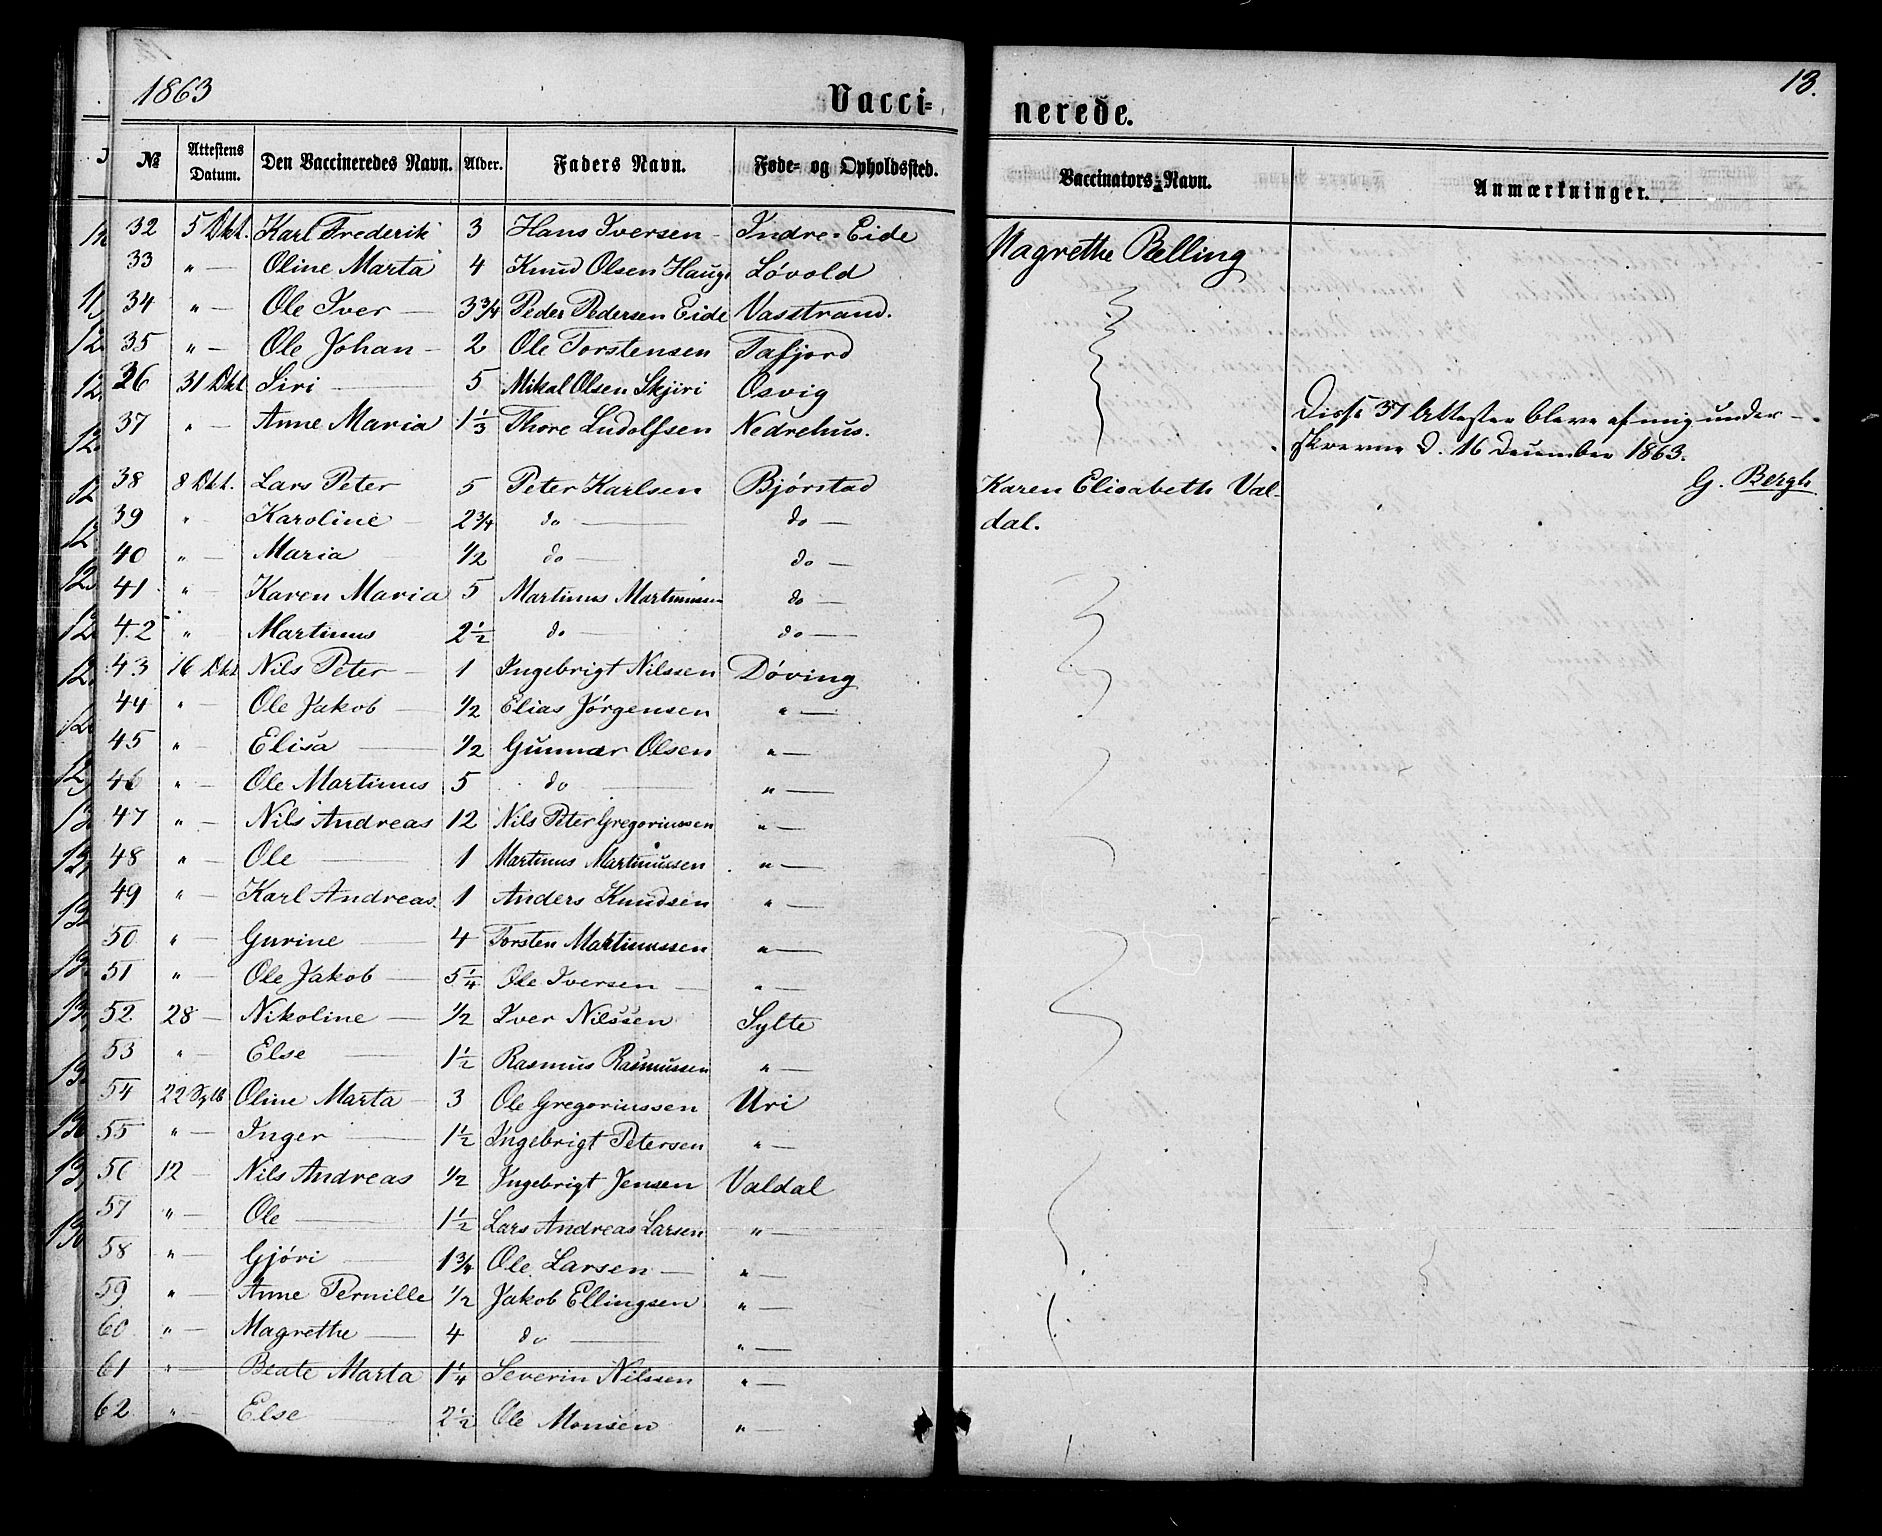 1863
Vacci-
№ Attestens Datum. Den Vaccineredes Navn. Alder. Faders Navn. Føde- og Opholdssted.
32 5 Okt. Karl Frederik 3 Hans Iversen Indre-Eide
33 " — Oline Marta 4 Knud Olsen Haug Løvold
34 " — Ole Iver — 3 3/4 Peder Pedersen Eide Vasstrand.
35 " — Ole Johan — 2 Ole Torstensen Tafjord
36 31 Okt Siri — 5 Mikal Olsen Skjiri Osvig
37 " — Anne Maria 1 1/3 Thore Ludolfsen Nedrehus.
38 8 Okt. Lars Peter 5 Peter Karlsen Bjørstad
39 " — Karoline — 2 3/4 do — do —
40 " — Maria 1/2 do — do —
41 " — Karen Maria 5 Martinus Martinussen do —
42 " — Martinus 2 1/2 do — do —
43 16 Okt Nils Peter — 1 Ingebrigt Nilssen Døving
44 " — Ole Jakob — 1/2 Elias Jørgensen " —
45 " — Elisa — 1/2 Gunnar Olsen " —
46 " — Ole Martinus 5 do — " —
47 " — Nils Andreas 12 Nils Peter Gregoriussen " —
48 " — Ole — 1 Martinus Martinussen " —
49 " — Karl Andreas. 1 Anders Knudsen " —
50 " — Gurine — 4 Torsten Martinussen " —
51 " — Ole Jakob — 5 1/4 Ole Iversen — " —
52 28 — Nikoline — 1/2 Iver Nilssen Sylte
53 " — Else — 1 1/2 Rasmus Rasmussen " —
54 22 Sptb Oline Marta — 3 Ole Gregoriussen Uri
55 " — Inger — 1 1/2 Ingebrigt Petersen " —
56 12 — Nils Andreas 1/2 Ingebrigt Jensen Valdal
57 " — Ole — 1 1/2 Lars Andreas Larsen " —
58 " — Gjøri — 1 3/4 Ole Larsen — " —
59 " — Anne Pernille 1/2 Jakob Ellingsen " —
60 " — Magrethe — 4 do — " —
61 " — Beate Marta 1 1/4 Severin Nilssen " —
62 " — Else — 2 1/2 Ole Monsen " —
13.
nerede.
Vaccinators-Navn. Anmærkninger.
Magrethe Relling
Disse 37 Attester bleve af mig under-
skrevne d. 16 December 1863.
G. Bergh
Karen Elisabeth Val-
dal.